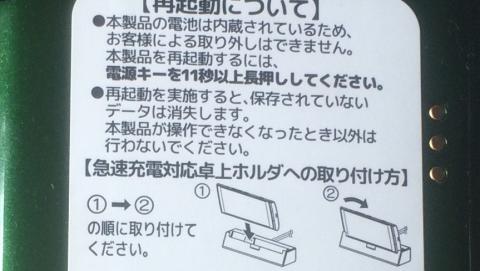 【再起動について】
●本製品の電池は内蔵されているため、
お客様による取り外しはできません。
本製品を再起動するには、
電源キーを11秒以上長押ししてください。
●再起動を実施すると、保存されていない
データは消失します。
本製品が操作できなくなったとき以外は
行わないでください。
【急速充電対応卓上ホルダへの取り付け方】
① ②
①➡②
の順に取り付けて
ください。